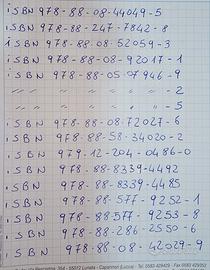 iSBN 978-88-08-44049-5
iSBN 978-88-247-7842-8
iSBN 978-88-08-52059-3
iSBN 978-88-08-92017-1
iSBN 978-88-05-07946-9
〃 〃 〃 〃 〃 -2
〃 〃 〃 〃 〃 -5
iSBN 978-88-08-72027-6
iSBN 978-88-58-34020-2
iSBN 979-12-204-0486-0
iSBN 978-88-8339-4492
iSBN 978-88-8339-4485
iSBN 978-88-577-9252-1
iSBN 978-88577-9253-8
iSBN 978-88-286-2550-6
iSBN 978-88-08-42029-9